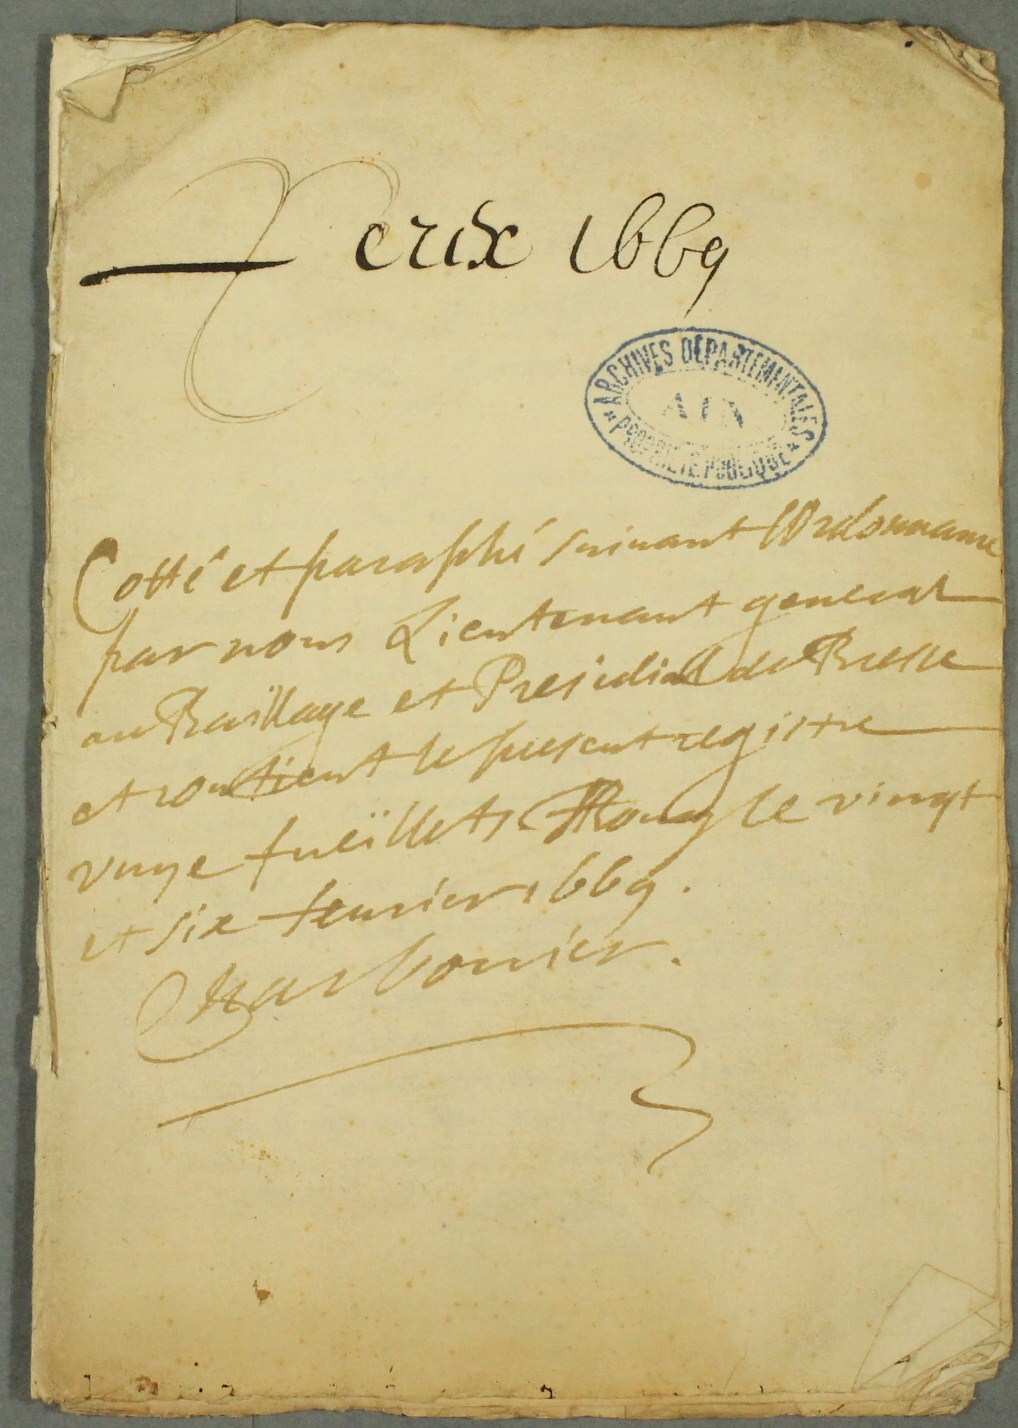 Perix 1669
ARCHIVES DÉPARTEMENTALES
AIN
PROPRIÉTÉ PUBLIQUE
Cotté et paraphé suivant l'Ordonnance
par nous Lieutenant general
au Baillage et Presidial de Bresse
et contient le present registre
unze fueillets Bourg le vingt
et six feurier 1669.
Charbonier.